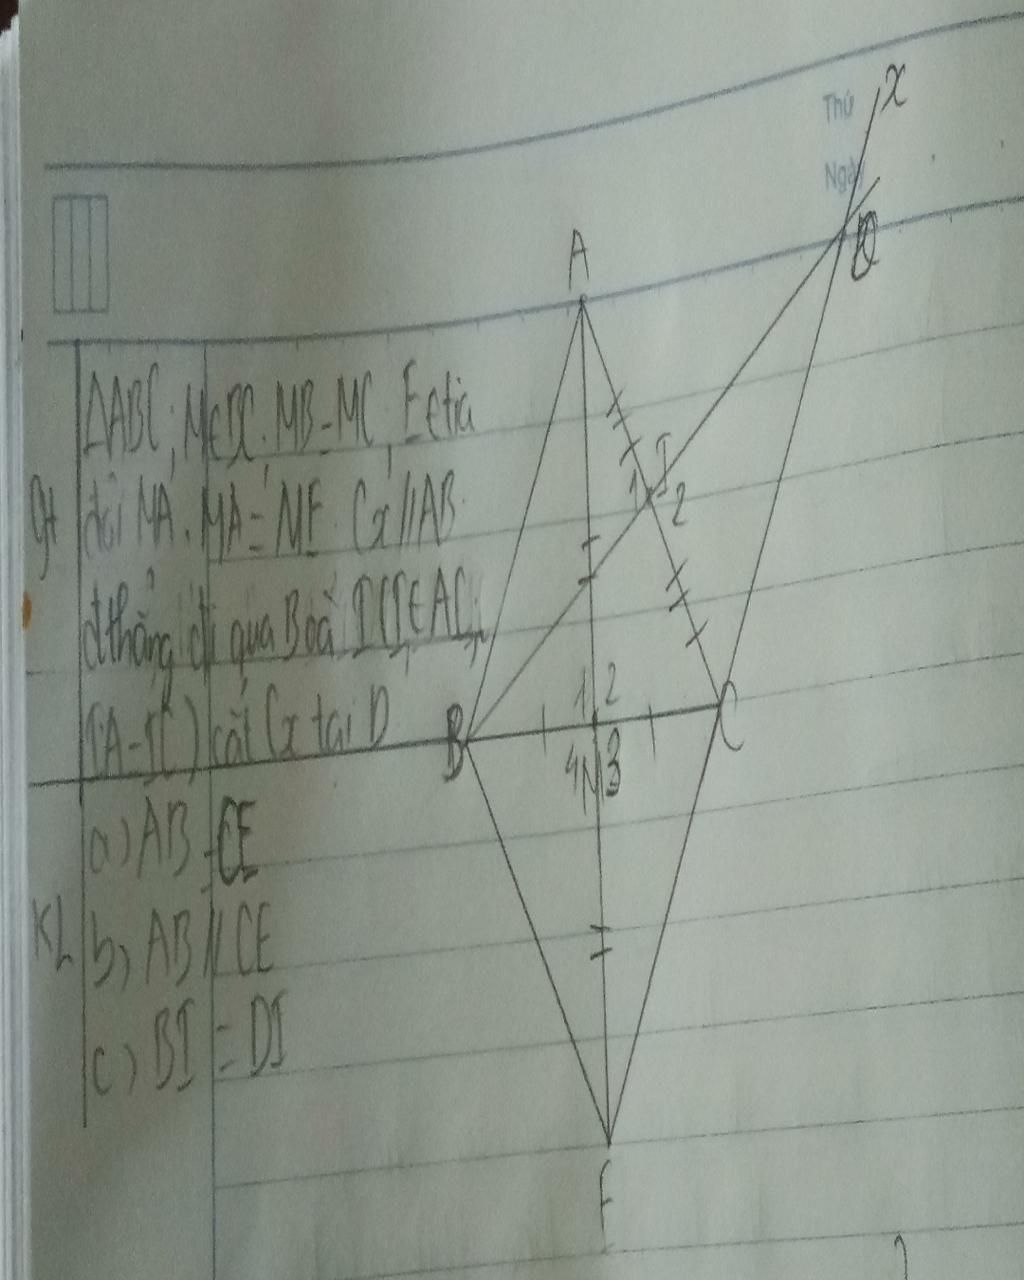 Thứ
Ngày
x
A
D
gt
ΔABC; M∈BC. MB=MC, E∈tia
đối MA. MA=ME. Cx//AB.
đthẳng đi qua B và I(I∈AC;
IA=IC) cắt Cx tại D
I
1
2
1 2
B
C
4 M 3
KL
a) AB=CE
b) AB//CE
c) BI=DI
E